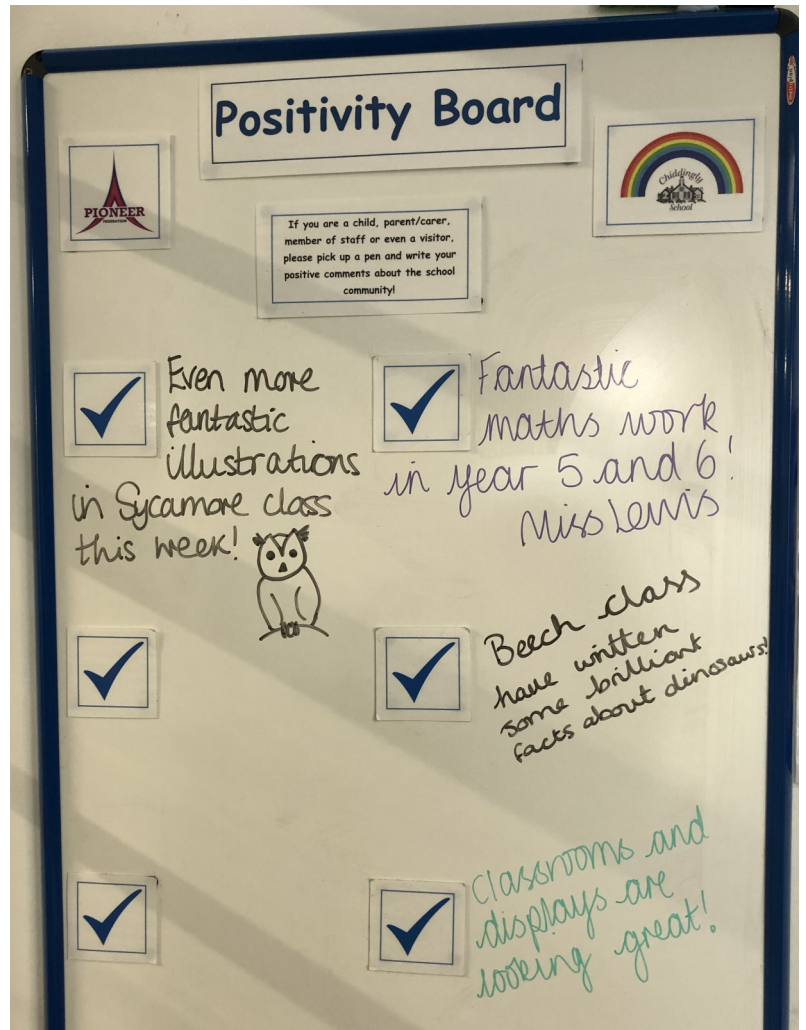 Positivity Board
PIONEER
FEDERATION
Chiddingly
School
If you are a child, parent/carer,
member of staff or even a visitor,
please pick up a pen and write your
positive comments about the school
community!
Even more
fantastic
illustrations
in Sycamore class
this week!
Fantastic
maths work
in year 5 and 6!
Miss Lewis
Beech class
have written
some brilliant
facts about dinosaurs!
Classrooms and
displays are
looking great!